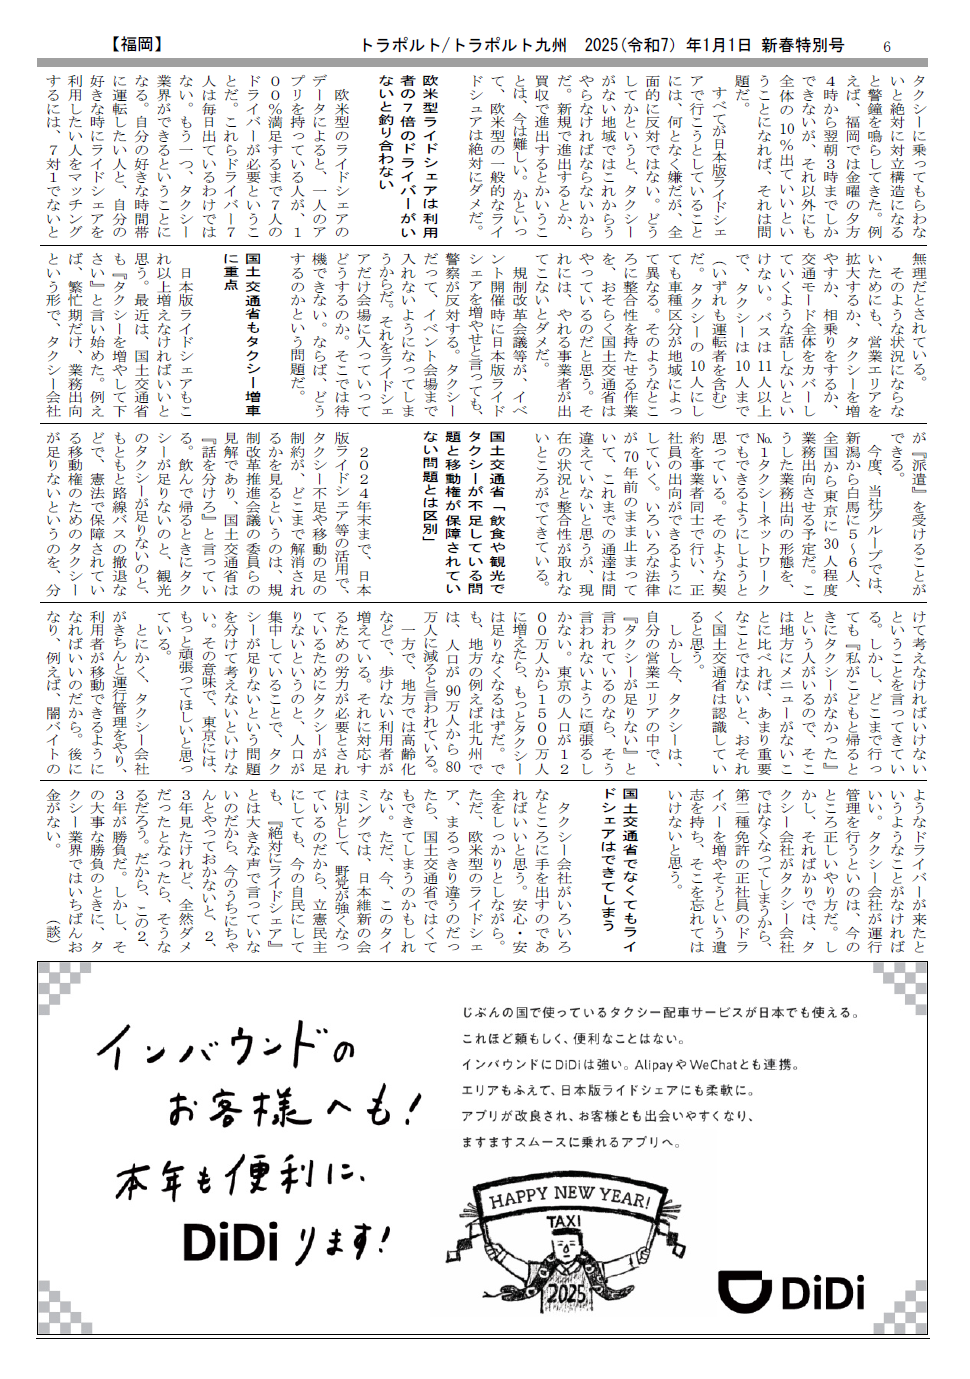 【福岡】
トラポルト/トラポルト九州　2025(令和7)年1月1日 新春特別号
6
タクシーに乗ってもらわな
いと絶対に対立構造になる
と警鐘を鳴らしてきた。例
えば、福岡では金曜の夕方
4時から翌朝3時までしか
できないが、それ以外にも
全体の10％出ていいとい
うことになれば、それは問
題だ。
すべてが日本版ライドシェ
アで行こうとしていること
には、何となく嫌だが、全
面的に反対ではない。どう
してかというと、タクシー
がない地域ではこれからう
やらなければならないから
だ。新規で進出するとか、
買収で進出するとかいうこ
とは、今は難しい。かといっ
て、欧米型の一般的なライ
ドシェアは絶対にダメだ。
欧米型ライドシェアは利用
者の7倍のドライバーがい
ないと釣り合わない
欧米型のライドシェアの
データによると、一人のア
プリを持っている人が、1
00％満足するまで7人の
ドライバーが必要というこ
とだ。これらドライバー7
人は毎日出ているわけでは
ない。もう一つ、タクシー
業界ができるということに
なる。自分の好きな時間帯
に運転したい人と、自分の
好きな時にライドシェアを
利用したい人をマッチング
するには、7対1でないと
無理だとされている。
そのような状況にならな
いためにも、営業エリアを
拡大するか、タクシーを増
やすか、相乗りをするか、
交通モード全体をカバーし
ていくような話しないとい
けない。バスは11人以上
で、タクシーは10人まで
（いずれも運転者を含む）
だ。タクシーの10人にし
ても車種区分が地域によっ
て異なる。そのようなとこ
ろに整合性を持たせる作業
を、おそらく国土交通省は
やっているのだと思う。そ
れには、やれる事業者が出
てこないとダメだ。
規制改革会議等が、イベ
ント開催時に日本版ライド
シェアを増やせと言っても、
警察が反対する。タクシー
だって、イベント会場まで
入れないようになってしま
うからだ。それをライドシェ
アだけ会場に入っていって
どうするのか。そこでは待
機できない。ならば、どう
するのかという問題だ。
国土交通省もタクシー増車
に重点
日本版ライドシェアもこ
れ以上増えなければいいと
思う。最近は、国土交通省
も『タクシーを増やして下
さい』と言い始めた。例え
ば、繁忙期だけ、業務出向
という形で、タクシー会社
が『派遣』を受けることが
できる。
今度、当社グループでは、
新潟から白馬に5～6人、
全国から東京に30人程度
業務出向させる予定だ。こ
うした業務出向の形態を、
No.1タクシーネットワーク
でもできるようにしようと
思っている。そのような契
約を事業者同士で行い、正
社員の出向ができるように
していく。いろいろな法律
が70年前のまま止まって
いて、これまでの通達は間
違えていないと思うが、現
在の状況と整合性が取れな
いところがでてきている。
国土交通省「飲食や観光で
タクシーが不足している問
題と移動権が保障されてい
ない問題とは区別」
2024年末まで、日本
版ライドシェア等の活用で、
タクシー不足や移動の足の
制約が、どこまで解消され
るかを見るというのは、規
制改革推進会議の委員らの
見解であり、国土交通省は
『話を分けろ』と言ってい
る。飲んで帰るときにタク
シーが足りないのと、観光
のタクシーが足りないのと、
もともと路線バスの撤退な
どで、憲法で保障されてい
る移動権のためのタクシー
が足りないというのを、分
けて考えなければいけない
ということを言ってきてい
る。しかし、どこまで行っ
ても『私がこどもと帰ると
きにタクシーがなかった』
という人がいるので、そこ
は地方にメニューがないこ
とに比べれば、あまり重要
なことではないと、おそれ
く国土交通省は認識してい
ると思う。
しかし今、タクシーは、
自分の営業エリアの中で、
『タクシーが足りない』と
言われているのなら、そう
言われないように頑張るし
かない。東京の人口が12
00万人から1500万人
に増えたら、もっとタクシー
は足りなくなるはずだ。で
も、地方の例えば北九州で
は、人口が90万人から80
万人に減ると言われている。
一方で、地方では高齢化
などで、歩けない利用者が
増えている。それに対応す
るための労力が必要とされ
ているためにタクシーが足
りないというのと、人口が
集中していることで、タク
シーが足りないという問題
を分けて考えないといけな
い。その意味で、東京には、
もっと頑張ってほしいと思っ
ている。
とにかく、タクシー会社
がきちんと運行管理をやり、
利用者が移動できるように
なればいいのだから。後に
なり、例えば、闇バイトの
ようなドライバーが来たと
いうようなことがなければ
いい。タクシー会社が運行
管理を行うというのは、今の
ところ正しいやり方だ。し
かし、そればかりでは、タ
クシー会社がタクシー会社
ではなくなってしまうから、
第二種免許の正社員のドラ
イバーを増やそうという遺
志を持ち、そこを忘れては
いけないと思う。
国土交通省でなくてもライ
ドシェアはできてしまう
タクシー会社がいろいろ
なところに手を出すのであ
ればいいと思う。安心・安
全をしっかりとしながら。
ただ、欧米型のライドシェ
ア、まるっきり違うのだっ
たら、国土交通省ではくて
もできてしまうのかもしれ
ない。ただ、今、このタイ
ミングでは、日本維新の会
は別として、野党が強くなっ
ているのだから、立憲民主
にしても、今の自民にして
も、『絶対にライドシェア』
とは大きな声で言っていな
いのだから、今のうちにちゃ
んとやっておかないと、2、
3年見たけれど、全然ダメ
だったとなったら、そうな
るだろう。だから、この2、
3年が勝負だ。しかし、そ
の大事な勝負のときに、タ
クシー業界ではいちばんお
金がない。
（談）
インバウンドの
お客様へも！
本年も便利に、
DiDiります！
じぶんの国で使っているタクシー配車サービスが日本でも使える。
これほど頼もしく、便利なことはない。
インバウンドにDiDiは強い。AlipayやWeChatとも連携。
エリアもふえて、日本版ライドシェアにも柔軟に。
アプリが改良され、お客様とも出会いやすくなり、
ますますスムースに乗れるアプリへ。
HAPPY NEW YEAR!
TAXI
2025
DiDi